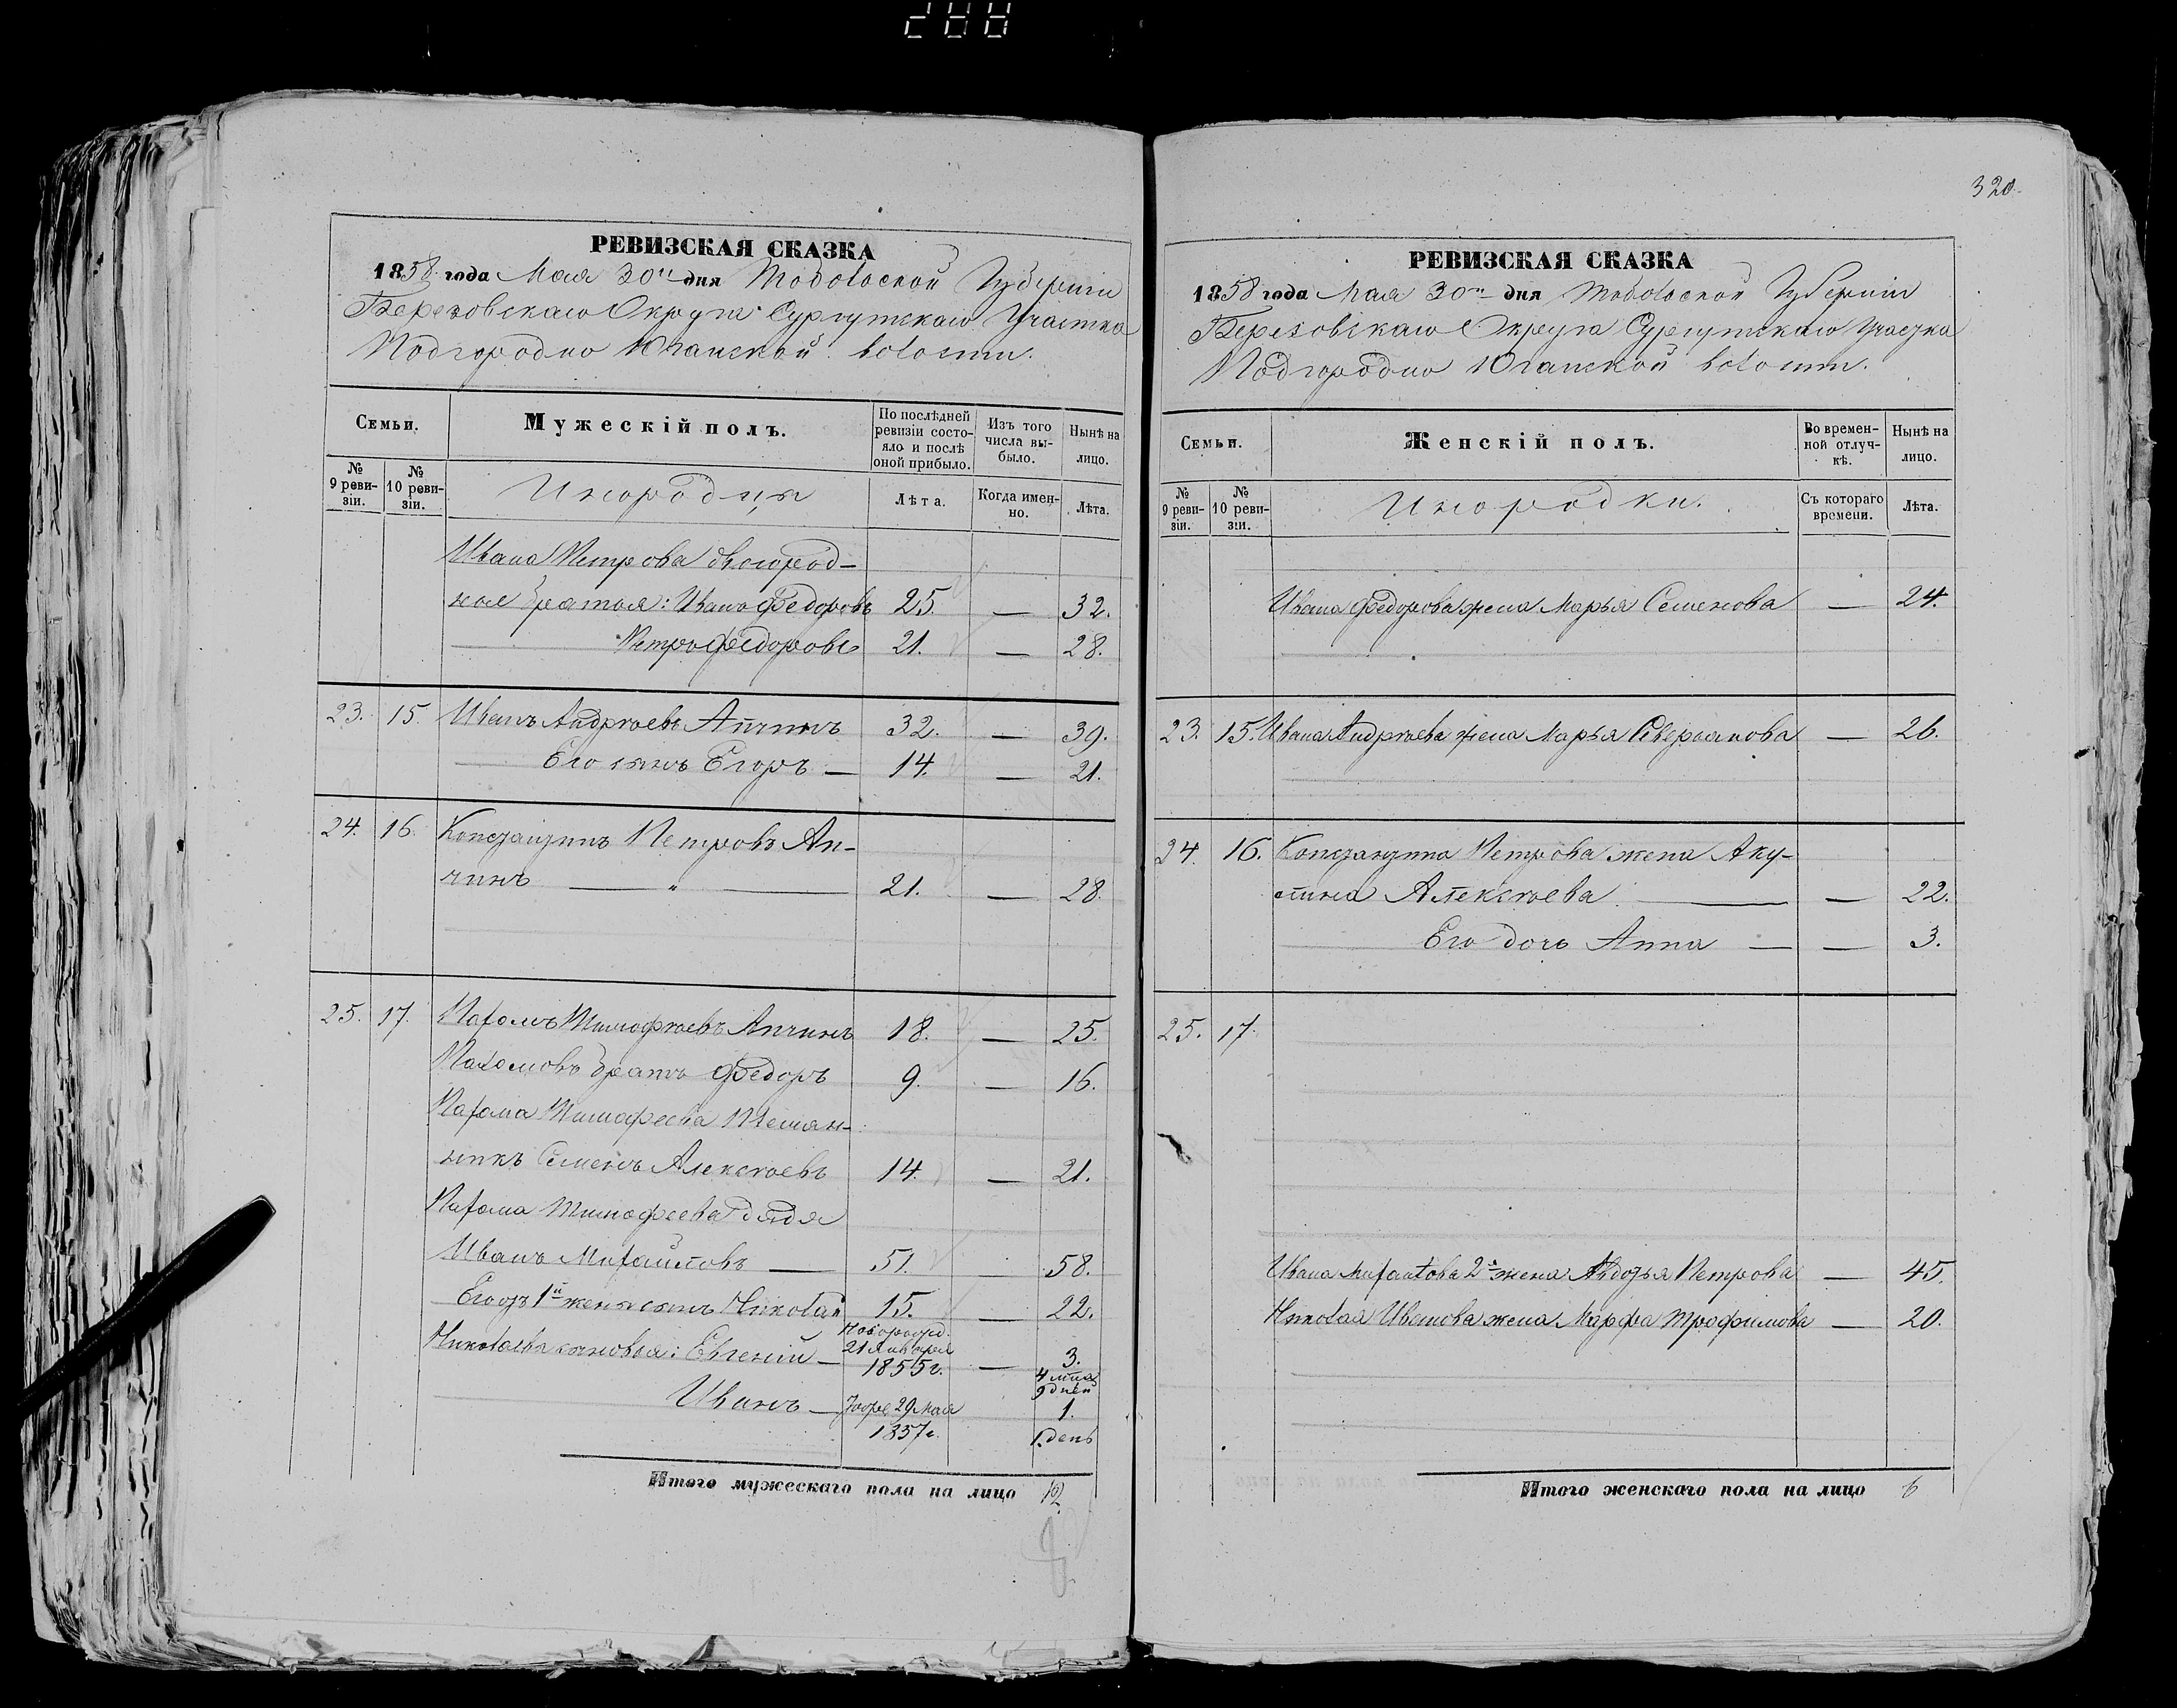 288
РЕВИЗСКАЯ СКАЗКА
1858 года Мая 30го дня Тобольской Губернии
Березовскаго Округа Сургутскаго Участка
Подгородно Юганской волости.
Семьи.
Мужескій полъ.
По послѣдней ревизіи состояло и послѣ оной прибыло.
Изъ того числа выбыло.
Нынѣ на лицо.
№ 9 ревизіи.
№ 10 ревизіи.
Инородцы
Лѣта.
Когда именно.
Лѣта.
Ивана Петрова двоюрод-
ные братья: Иванъ Федоровъ 25. — 32.
Петръ Федоровъ 21. — 28.
23. 15. Иванъ Андреевъ Апчинъ 32. — 39.
Его сынъ Егоръ — 14. — 21.
24. 16. Константинъ Петровъ Ап-
чинъ — " — 21. — 28.
25. 17. Пахомъ Тимофѣевъ Апчинъ 18. — 25.
Пахомовъ братъ Федоръ 9. — 16.
Пахома Тимофеева племян-
никъ Семенъ Алексѣевъ 14. — 21.
Пахома Тимофеева дядя
Иванъ Михайловъ — 51. — 58.
Его отъ 1й жены сынъ Николай 15. — 22.
Николаевы сыновья: Евгеній — Новорожд. 21 Января 1855 г. — 3. 4 м-ца 9 дней
Иванъ — 29 Мая 1857 г. 1. 1. день
Итого мужескаго пола на лицо 12
320.
РЕВИЗСКАЯ СКАЗКА
1858 года Мая 30го дня Тобольской Губерніи
Березовскаго Округа Сургутскаго Участка
Подгородно Юганской волости.
Семьи.
Женскій полъ.
Во временной отлучкѣ.
Нынѣ на лицо.
№ 9 ревизіи.
№ 10 ревизіи.
Инородки.
Съ котораго времени.
Лѣта.
Ивана Федорова жена Марья Семенова — 24.
23. 15. Ивана Андреева жена Марья Северьянова — 26.
24. 16. Константина Петрова жена Аку-
лина Алексѣева — — 22.
Его дочь Анна — — 3.
25. 17.
Ивана Михайлова 2я жена Авдотья Петрова — 45.
Николая Иванова жена Марфа Трофимова — 20.
Итого женскаго пола на лицо 6